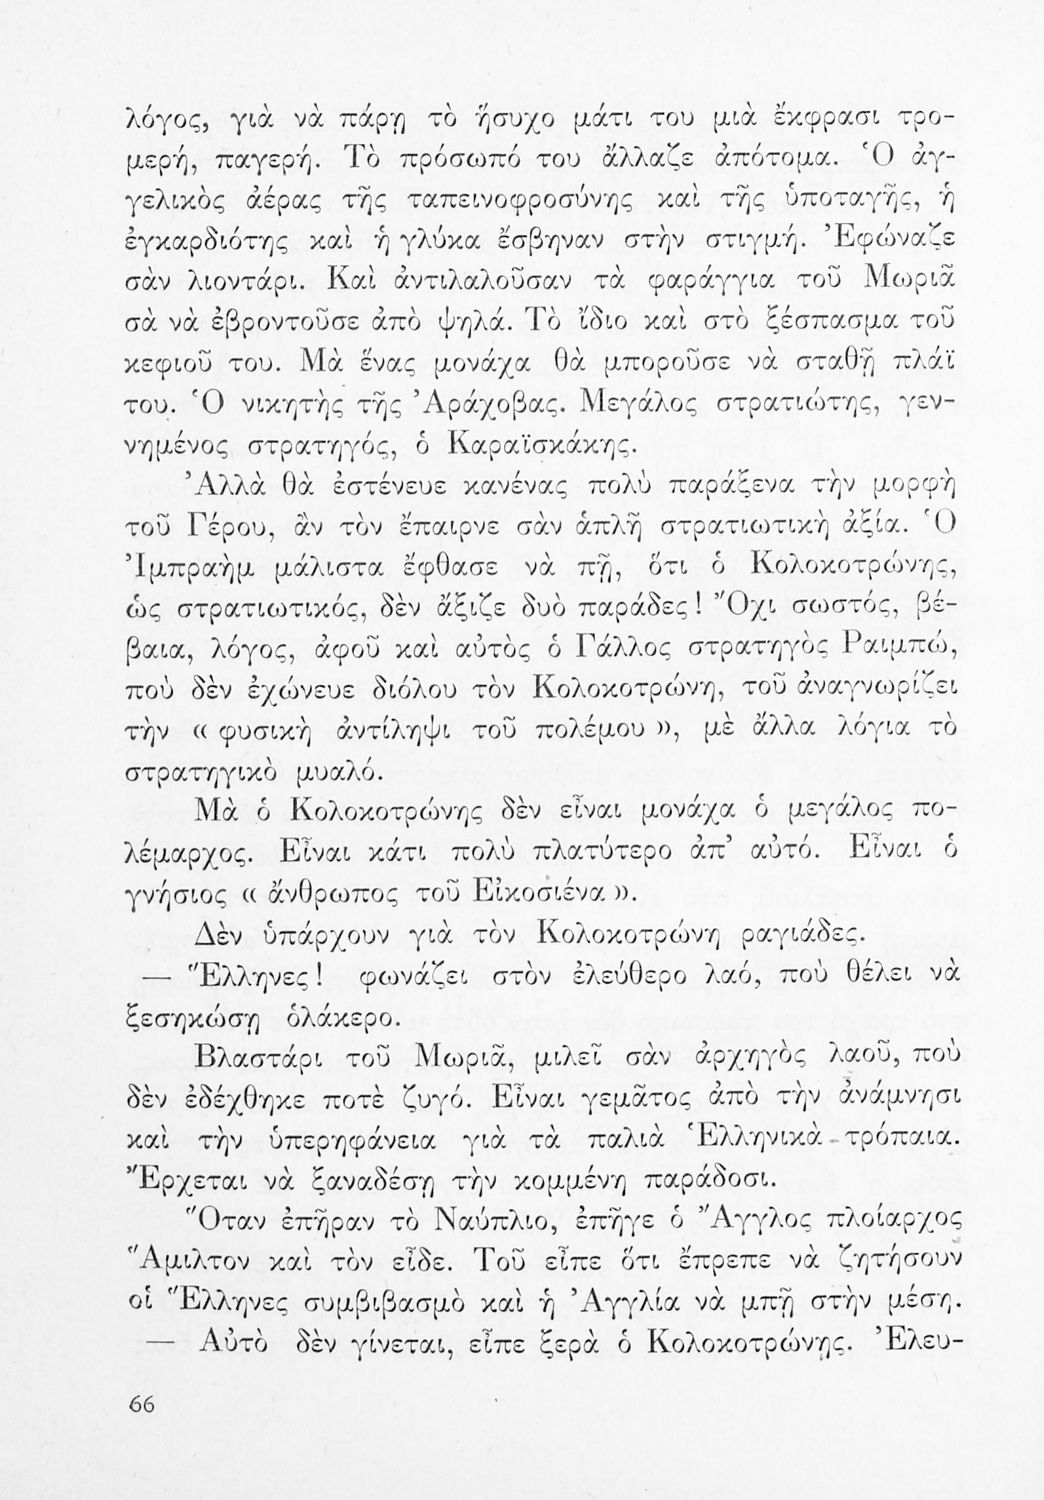 λόγος, γιὰ νὰ πάρῃ τὸ ἥσυχο μάτι του μιὰ ἔκφρασι τρο-
μερή, παγερή. Τὸ πρόσωπό του ἄλλαζε ἀπότομα. Ὁ ἀγ-
γελικὸς ἀέρας τῆς ταπεινοφροσύνης καὶ τῆς ὑποταγῆς, ἡ
ἐγκαρδιότης καὶ ἡ γλύκα ἔσβηναν στὴν στιγμή. Ἐφώναζε
σὰν λιοντάρι. Καὶ ἀντιλαλοῦσαν τὰ φαράγγια τοῦ Μωριᾶ
σὰ νὰ ἐβροντοῦσε ἀπὸ ψηλά. Τὸ ἴδιο καὶ στὸ ξέσπασμα τοῦ
κεφιοῦ του. Μὰ ἕνας μονάχα θὰ μποροῦσε νὰ σταθῇ πλάϊ
του. Ὁ νικητὴς τῆς Ἀράχοβας. Μεγάλος στρατιώτης, γεν-
νημένος στρατηγός, ὁ Καραϊσκάκης.
Ἀλλὰ θὰ ἐστένευε κανένας πολὺ παράξενα τὴν μορφὴ
τοῦ Γέρου, ἂν τὸν ἔπαιρνε σὰν ἁπλῆ στρατιωτικὴ ἀξία. Ὁ
Ἰμπραὴμ μάλιστα ἔφθασε νὰ πῇ, ὅτι ὁ Κολοκοτρώνης,
ὡς στρατιωτικός, δὲν ἄξιζε δυὸ παράδες! Ὄχι σωστός, βέ-
βαια, λόγος, ἀφοῦ καὶ αὐτὸς ὁ Γάλλος στρατηγὸς Ραιμπώ,
ποὺ δὲν ἐχώνευε διόλου τὸν Κολοκοτρώνη, τοῦ ἀναγνωρίζει
τὴν « φυσικὴ ἀντίληψι τοῦ πολέμου », μὲ ἄλλα λόγια τὸ
στρατηγικὸ μυαλό.
Μὰ ὁ Κολοκοτρώνης δὲν εἶναι μονάχα ὁ μεγάλος πο-
λέμαρχος. Εἶναι κάτι πολὺ πλατύτερο ἀπ’ αὐτό. Εἶναι ὁ
γνήσιος « ἄνθρωπος τοῦ Εἰκοσιένα ».
Δὲν ὑπάρχουν γιὰ τὸν Κολοκοτρώνη ραγιάδες.
— Ἕλληνες! φωνάζει στὸν ἐλεύθερο λαό, ποὺ θέλει νὰ
ξεσηκώσῃ ὁλάκερο.
Βλαστάρι τοῦ Μωριᾶ, μιλεῖ σὰν ἀρχηγὸς λαοῦ, ποὺ
δὲν ἐδέχθηκε ποτὲ ζυγό. Εἶναι γεμᾶτος ἀπὸ τὴν ἀνάμνησι
καὶ τὴν ὑπερηφάνεια γιὰ τὰ παλιὰ Ἑλληνικὰ τρόπαια.
Ἔρχεται νὰ ξαναδέσῃ τὴν κομμένη παράδοσι.
Ὅταν ἐπῆραν τὸ Ναύπλιο, ἐπῆγε ὁ Ἄγγλος πλοίαρχος
Ἅμιλτον καὶ τὸν εἶδε. Τοῦ εἶπε ὅτι ἔπρεπε νὰ ζητήσουν
οἱ Ἕλληνες συμβιβασμὸ καὶ ἡ Ἀγγλία νὰ μπῇ στὴν μέση.
— Αὐτὸ δὲν γίνεται, εἶπε ξερὰ ὁ Κολοκοτρώνης. Ἐλευ-
66